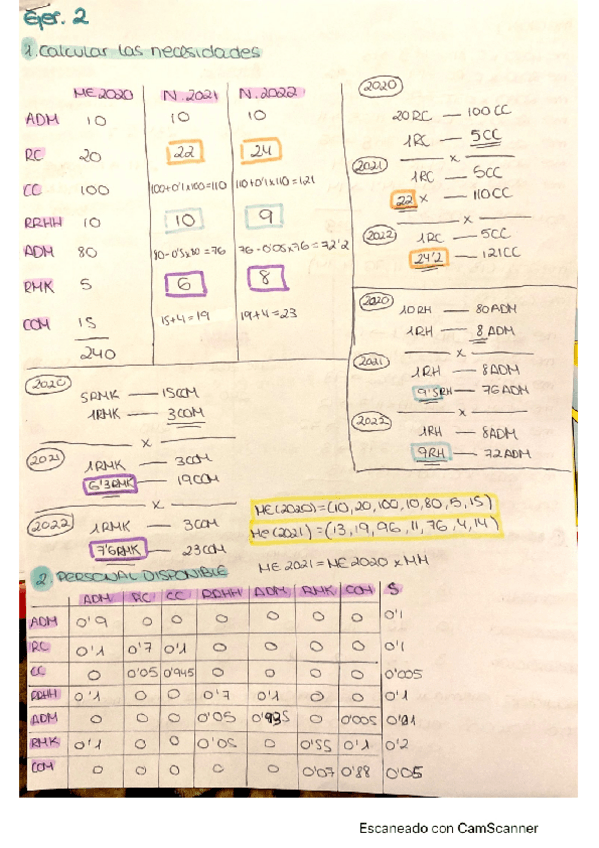 Ejer. 2
1. Calcular las necesidades
ME2020 N.2021 N.2022
ADM 10 10 10
RC 20 22 24
CC 100 100+0'1x100=110 110+0'1x110=121
RRHH 10 10 9
ADM 80 80-0'5x80=76 76-0'05x76=72'2
RMK 5 6 8
COM 15 15+4=19 19+4=23
240
2020
20RC — 100CC
1RC — 5CC
x
2021
1RC — 5CC
22 x — 110CC
x
2022
1RC — 5CC
24'2 — 121CC
2020
10RH — 80ADM
1RH — 8 ADM
x
2021
1RH — 8ADM
9'5RH — 76ADM
x
2022
1RH — 8ADM
9RH — 72ADM
2020
5RMK — 15COM
1RMK — 3COM
x
2021
1RMK — 3COM
6'3RMK — 19COM
x
2022
1RMK — 3COM
7'6RMK — 23COM
ME(2020)=(10,20,100,10,80,5,15)
Me(2021)=(13,19,96,11,76,4,14)
ME2021=ME2020xMM
2. PERSONAL DISPONIBLE
ADM RC CC RRHH ADM RMK COM S
ADM 0'9 0 0 0 0 0 0 0'1
RC 0'1 0'7 0'1 0 0 0 0 0'1
CC 0 0'05 0'945 0 0 0 0 0'005
RRHH 0'1 0 0 0'7 0'1 0 0 0'1
ADM 0 0 0 0'05 0'935 0 0'005 0'01
RMK 0'1 0 0 0'05 0 0'55 0'1 0'2
COM 0 0 0 0 0 0'07 0'88 0'05
Escaneado con CamScanner